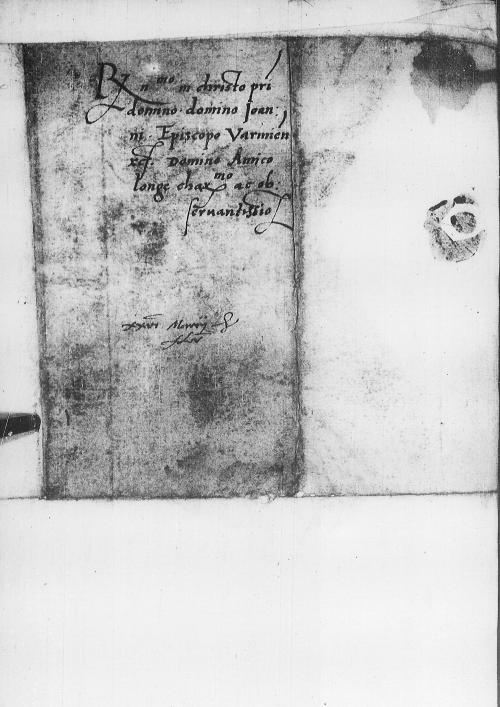 R n mo in christo pri
domino domino Joan:
ni Episcopo Varmien
domino Amico
longe char mo ac ob.
servantissio
xxvi